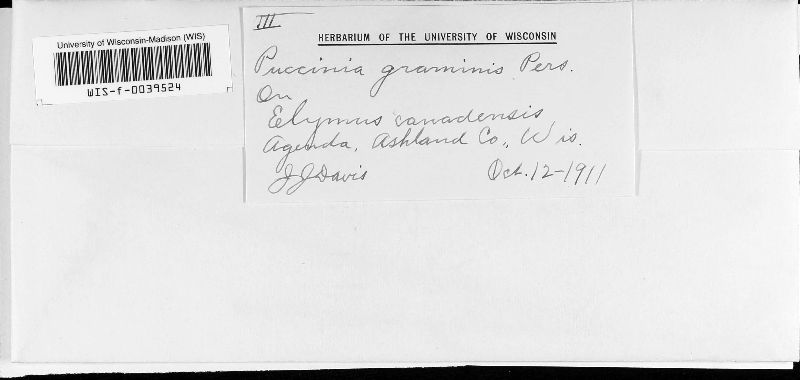 University of Wisconsin-Madison (WIS)
WIS-f-0039524
III
HERBARIUM OF THE UNIVERSITY OF WISCONSIN
Puccinia graminis Pers.
On
Elymus canadensis
Agenda, Ashland Co., Wis.
J J Davis Oct. 12-1911